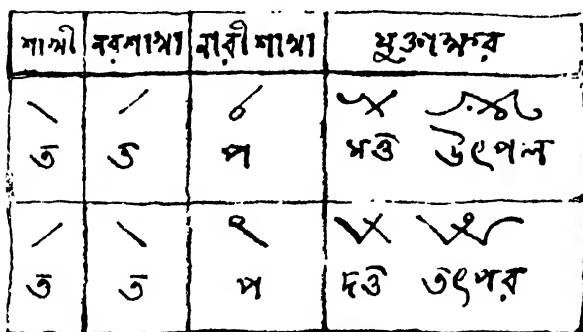 শাখী নরশাখা নারীশাখা যুক্তাক্ষর
ত ত প মত্ত উৎপল
ত ত প দত্ত তৎপর